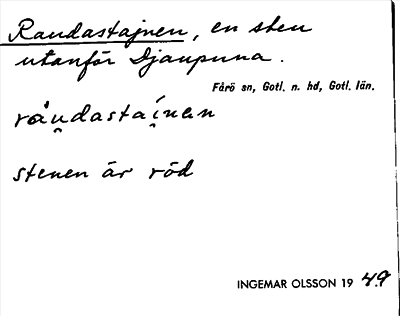 Raudastajnen, en sten
utanför Djaupuna.
Fårö sn, Gotl. n. hd, Gotl. län.
råu̯dastai̯nen
stenen är röd
INGEMAR OLSSON 19 49